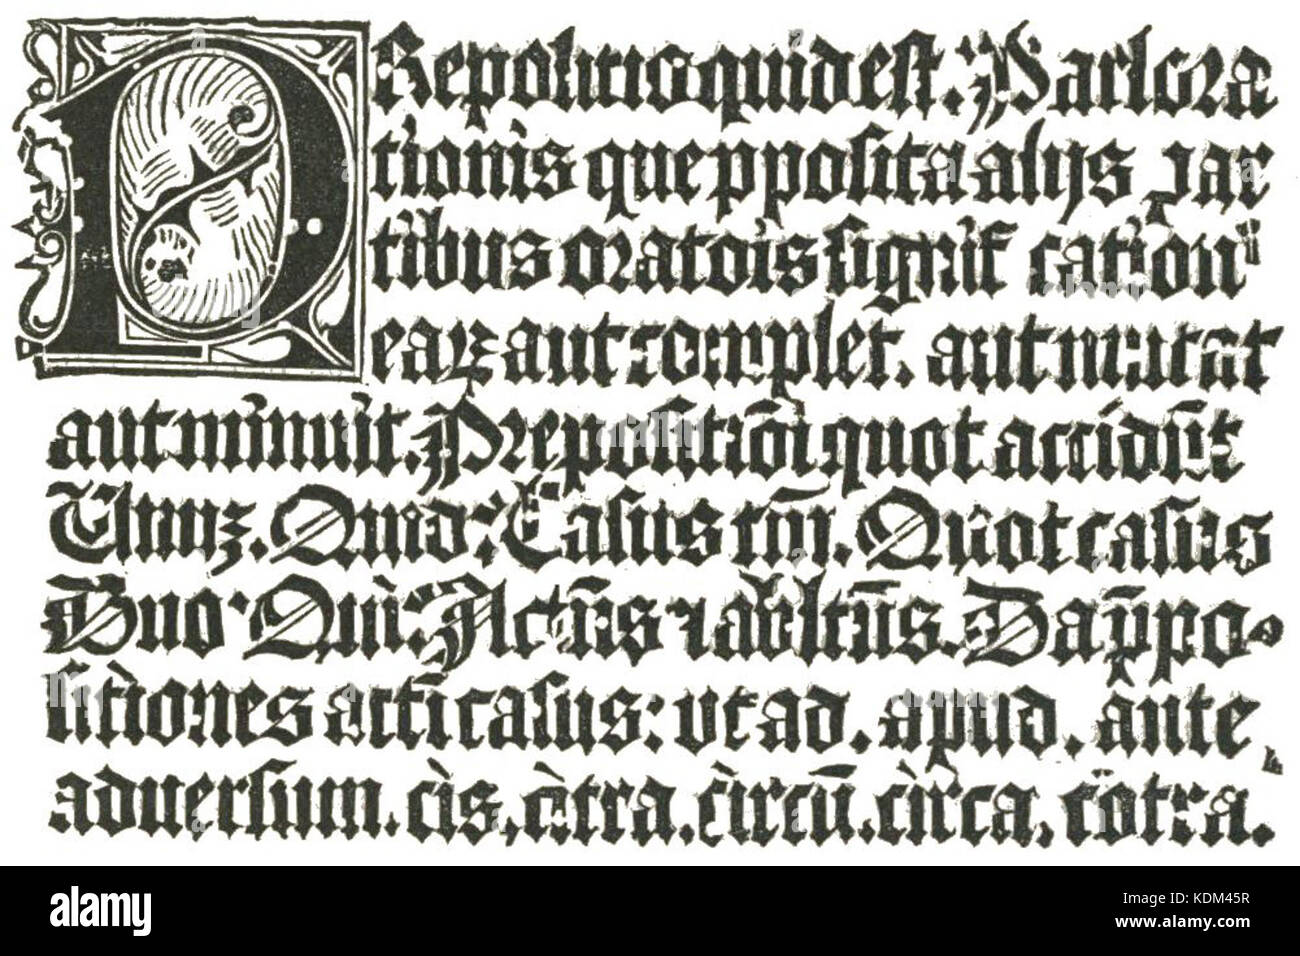 PRepositio quid est. Pars ora
tionis que ꝓposita alijs par
tibus oratoīs significationē
eaꝝ aut complet. aut mutat
aut minuit. Prepositiōi quot accidūt
Unuꝫ. Quid. Casus tm̄. Quot casus
Duo. Qui. Actūs ⁊ ablatūs. Da p̄po
sitiones acc̄ti casus: vt ad. apud. ante
aduersum. cis. citra. circū. circa. cōtra.
alamy
Image ID: KDM45R
www.alamy.com